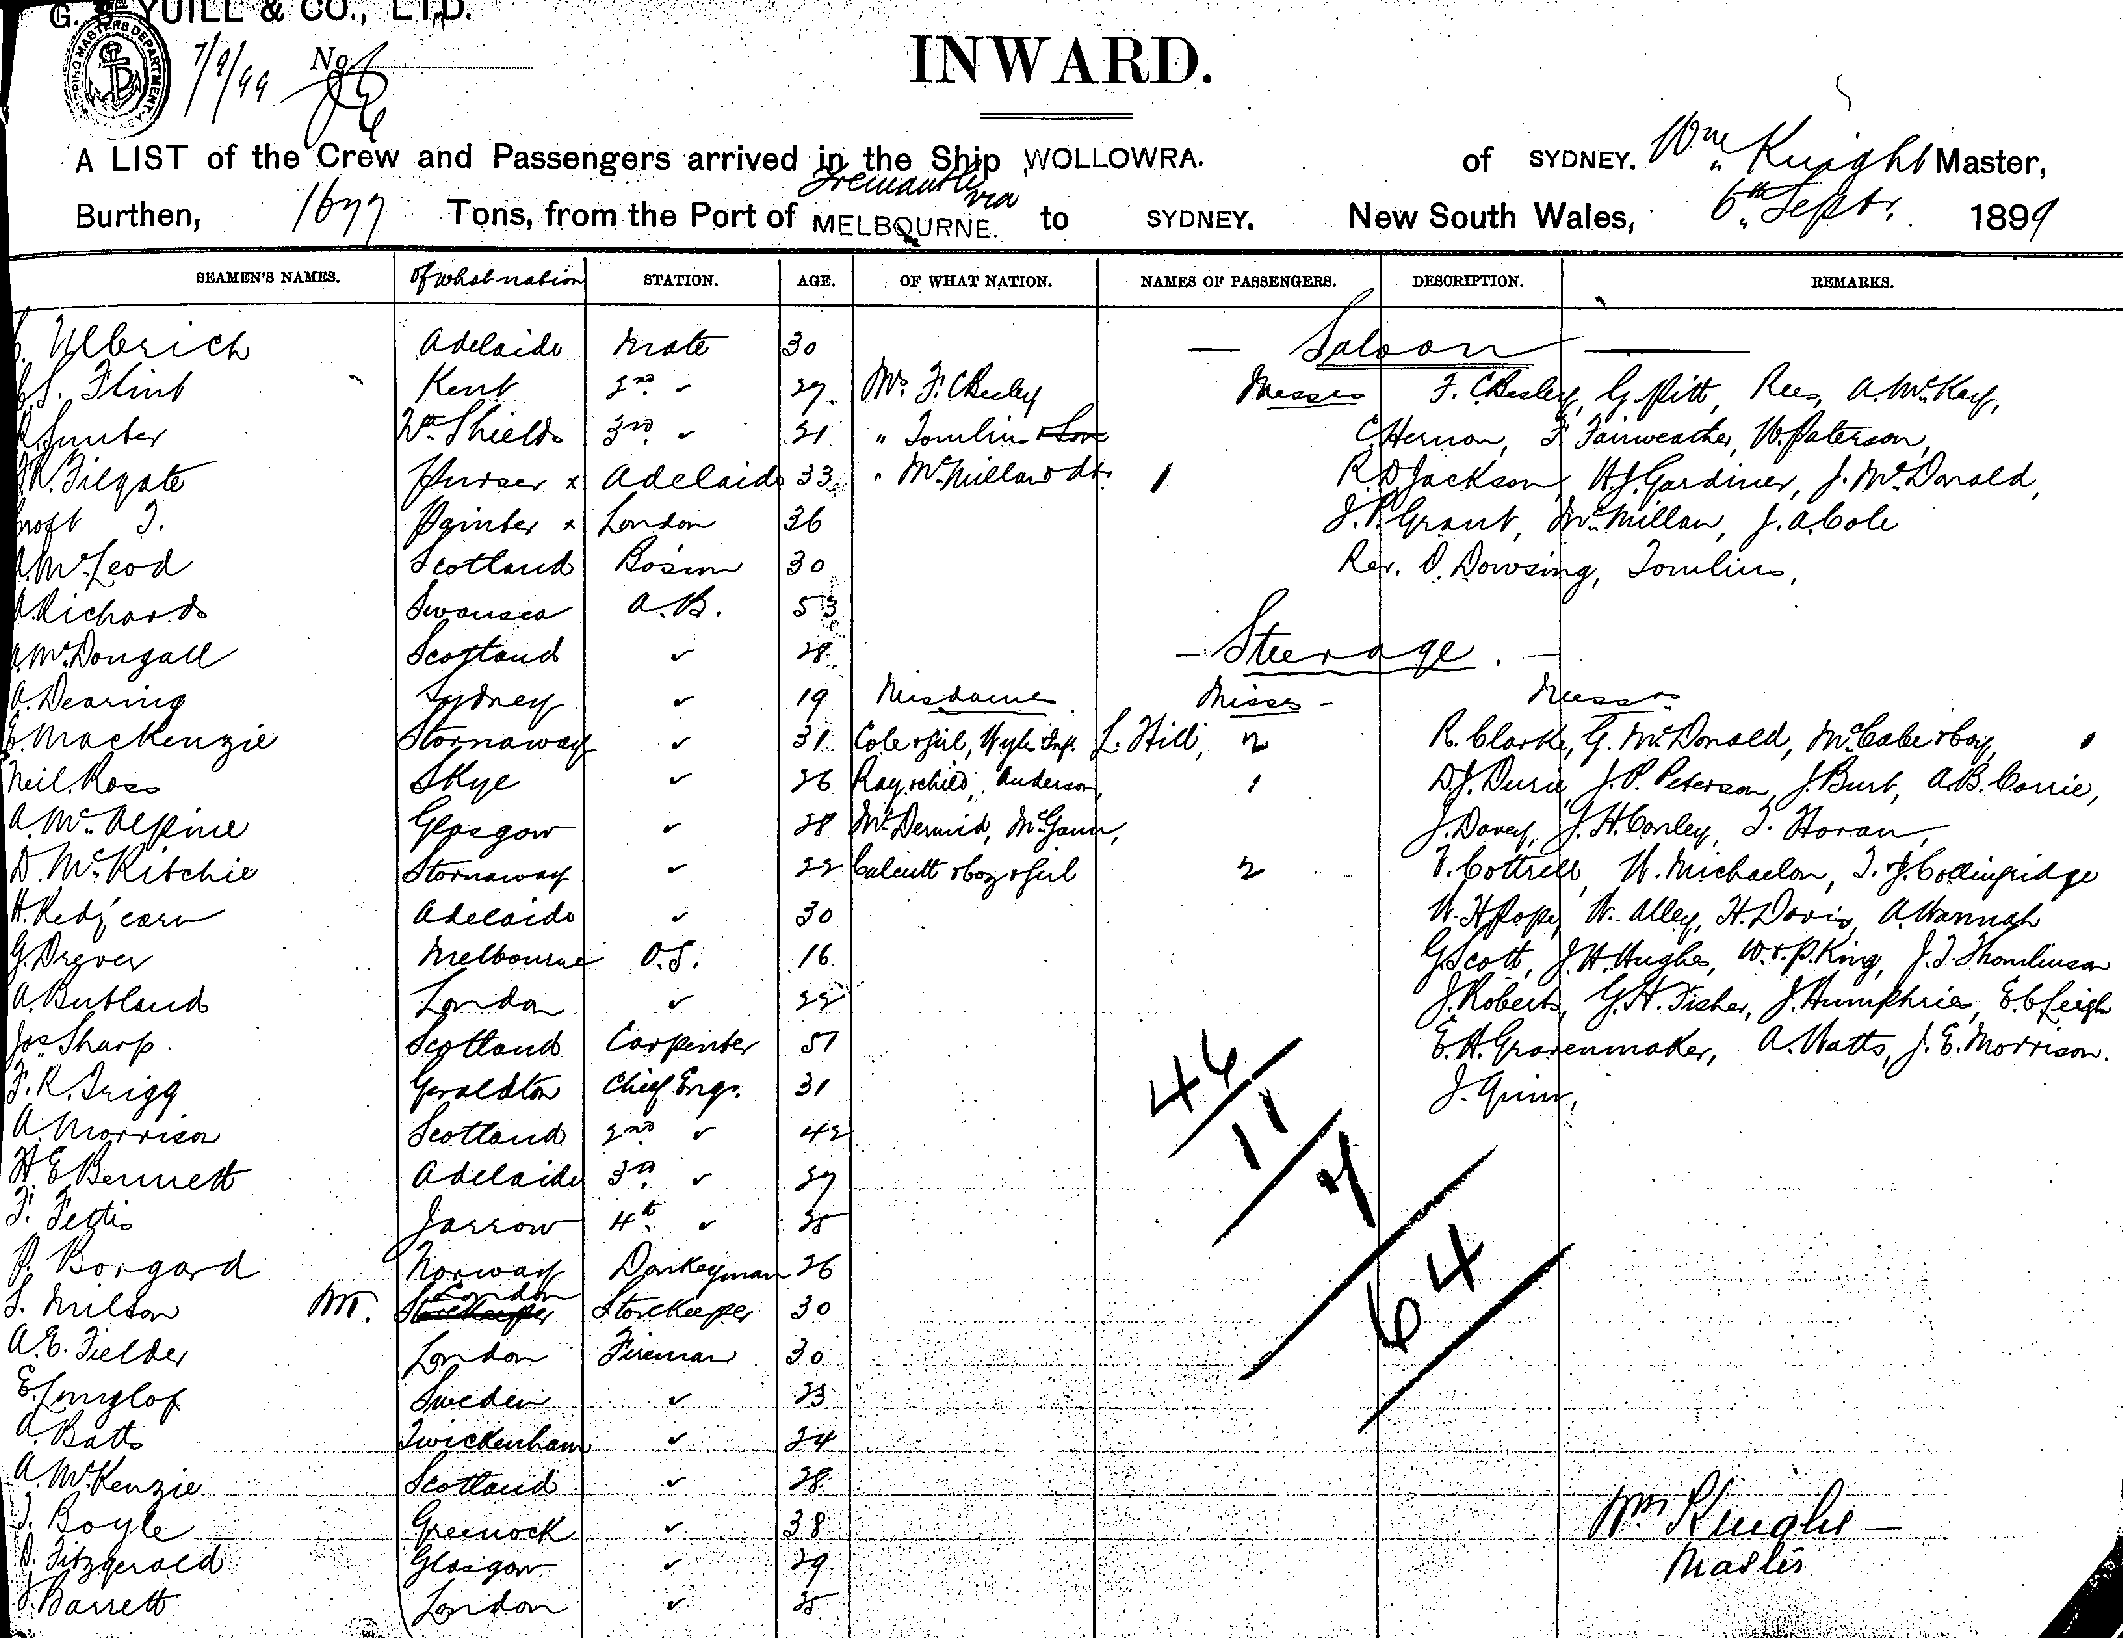 G. S. YUILL & CO., LTD.
7/9/99 No.
INWARD.
A LIST of the Crew and Passengers arrived in the Ship WOLLOWRA. of SYDNEY. Wm Knight Master,
Fremantle via
Burthen, 1677 Tons, from the Port of MELBOURNE. to SYDNEY. New South Wales, 6th Septr. 1899
SEAMEN'S NAMES. Of what nation STATION. AGE. OF WHAT NATION. NAMES OF PASSENGERS. DESCRIPTION. REMARKS.
Ulbrich Adelaide Mate 30 — Saloon —
S. Flint Kent 2nd " 27 Mrs F. Chesley Messrs F. Chesley, G. Pitt, Rees, A. McKay,
Sunter Wn Shields 3rd " 21 " Tomlins C. Hernon, F. Fairweather, W. Paterson,
W. Filgate Purser x Adelaide 33 " McMillan & dtr. 1 R. D. Jackson, H. J. Gardiner, J. McDonald,
T. Painter x London 36 J. P. Grant, McMillan, J. A. Cole
A. McLeod Scotland Bosun 30 Rev. D. Dowsing, Tomlins,
Richards Swansea A.B. 53
A. McDougall Scotland " 28 — Steerage. —
A. Dearing Sydney " 19 Mesdames Misses - Messrs
E. Mackenzie Stornaway " 31 Cole & girl, Hyle Inft. L. Hill, 2 R. Clarke, G. McDonald, McCabe & boy, 1
Neil Ross Skye " 26 Ray & child, Anderson, 1 D. J. Durie, J. P. Peterson, J. Burt, A. B. Corrie,
A. McAlpine Glasgow " 28 McDermid, McGann, J. Davey, J. H. Conley, T. Horan,
D. McRitchie Stornaway " 22 Calcutt & boy & girl 2 T. Cottrell, W. Michaelon, T. & J. Collingridge
H. Redfearn Adelaide " 30 W. H. Pope, W. Alley, H. Davis, A. Hannah
G. Drever Melbourne O.S. 16 G. Scott, J. H. Hughes, W. & P. King, J. T. Thomlinson
A. Butland London " 22 J. Roberts, G. H. Fisher, J. Humphries, E. C. Leigh
Jos Sharp. Scotland Carpenter 51 E. H. Gravenmaker, A. Watts, J. E. Morrison.
F. R. Trigg Geraldton Chief Engr. 31 J. Quinn,
A. Morrison Scotland 2nd " 42
H. E. Bennett Adelaide 3rd " 27
F. Fettis Jarrow 4th " 25
P. Borgard Norway Donkeyman 26
S. Milson London Storekeeper 30
A. E. Fielder London Fireman 30
E. Sweden " 23
A. Batts Twickenham " 24
A. McKenzie Scotland " 28
T. Boyle Greenock " 38
D. Fitzgerald Glasgow " 29
J. Barrett London " 25
46
11
7
64
Wm Knight —
Master